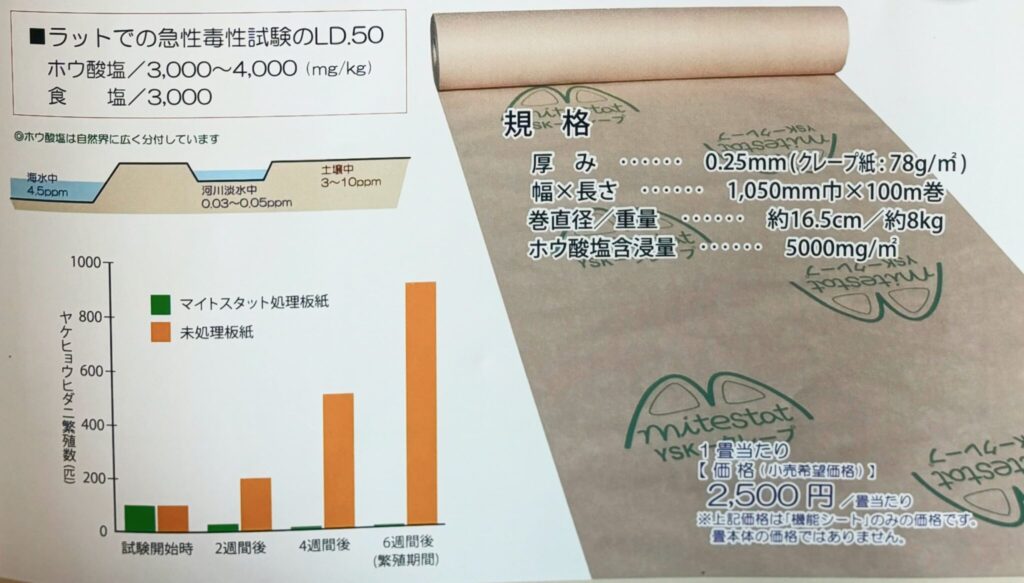 ■ラットでの急性毒性試験のLD.50
ホウ酸塩／3,000～4,000（mg/kg）
食　塩／3,000
◎ホウ酸塩は自然界に広く分付しています
海水中
4.5ppm
河川淡水中
0.03～0.05ppm
土壌中
3～10ppm
ヤケヒョウヒダニ繁殖数(匹)
1000
800
600
400
200
0
マイトスタット処理板紙
未処理板紙
試験開始時
2週間後
4週間後
6週間後
(繁殖期間)
mitestat
YSK－クレープ
mitestat
YSK－クレープ
規　格
厚　み ‥‥‥ 0.25mm(クレープ紙：78g/㎡)
幅×長さ ‥‥‥ 1,050mm巾×100m巻
巻直径／重量 ‥‥‥ 約16.5cm／約8kg
ホウ酸塩含浸量 ‥‥‥ 5000mg/㎡
YSK－クレープ
mitestat
YSK－クレープ
mitestat
YSK－クレープ
mitestat
YSK－クレープ
1畳当たり
【 価 格 (小売希望価格) 】
2,500 円 ／畳当たり
※上記価格は「機能シート」のみの価格です。
畳本体の価格ではありません。